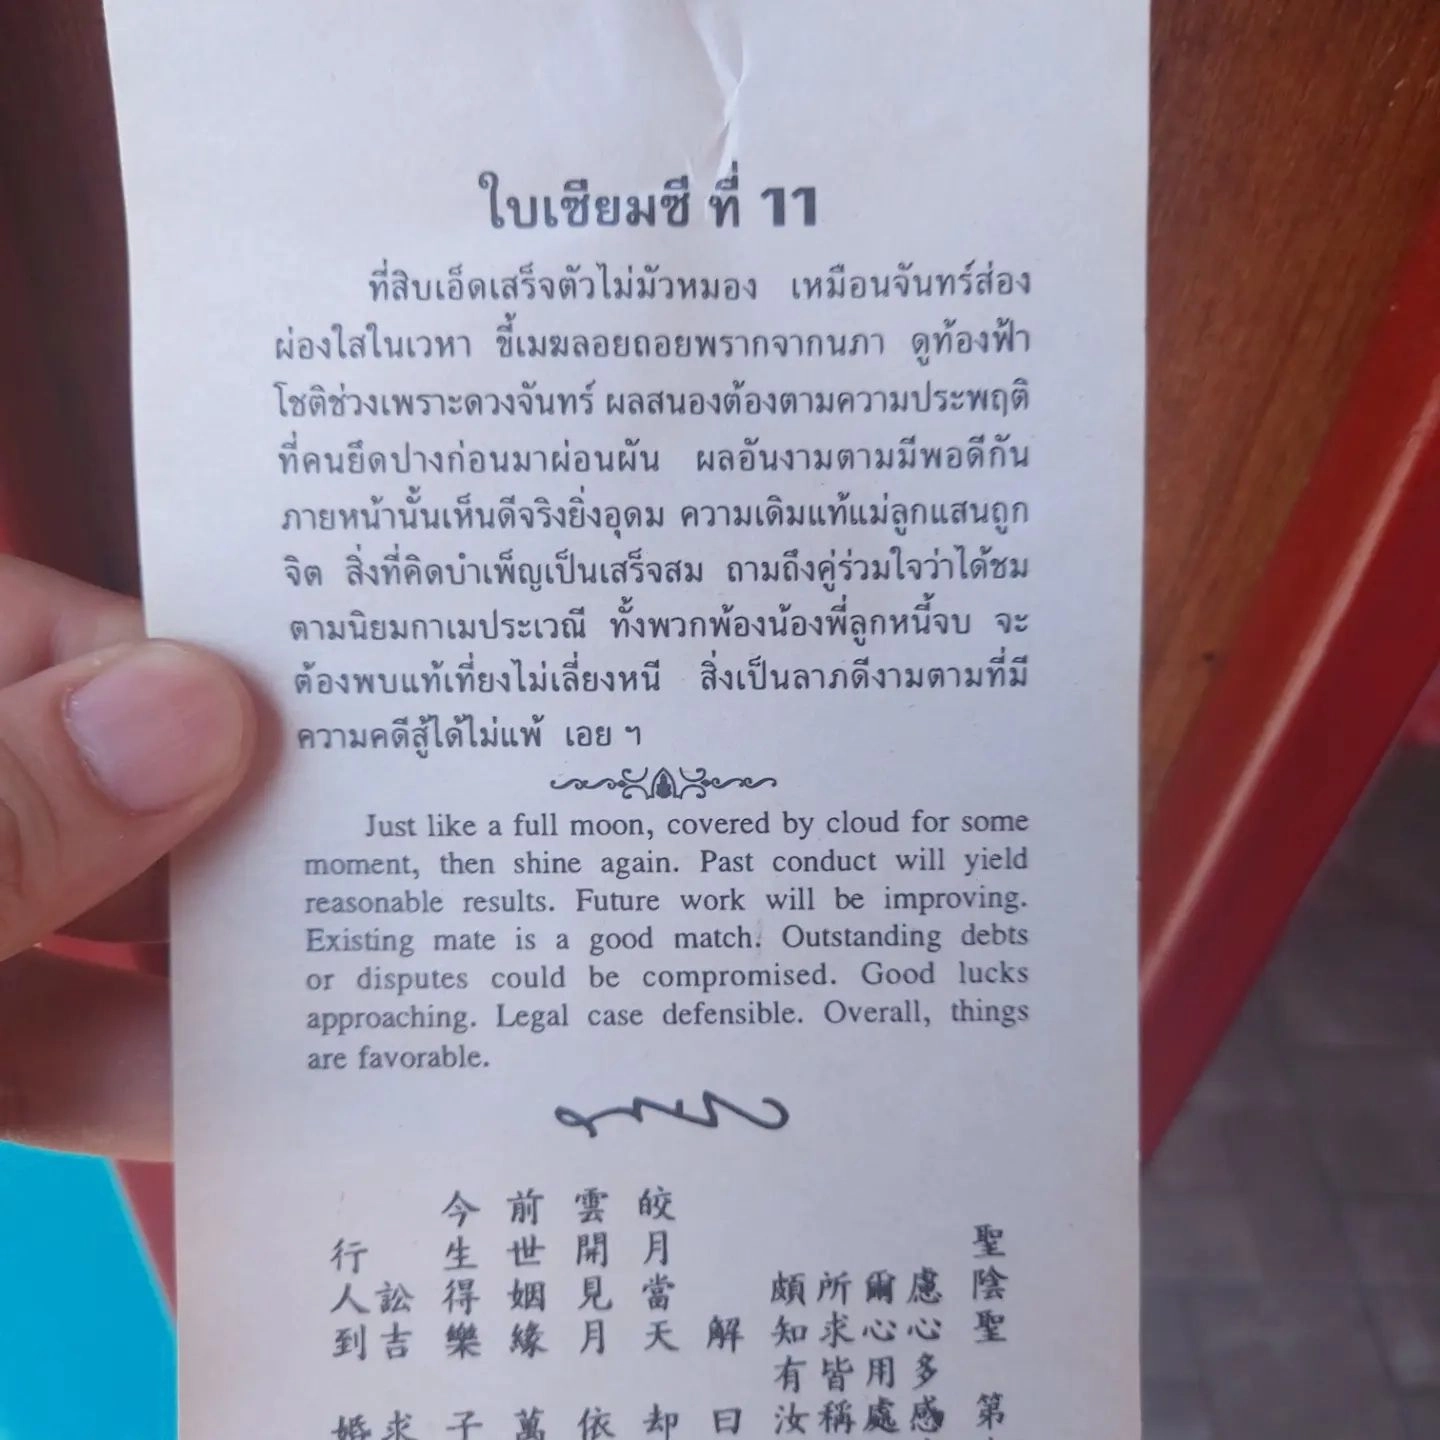 ใบเซียมซี ที่ 11
ที่สิบเอ็ดเสร็จตัวไม่มัวหมอง เหมือนจันทร์ส่อง
ผ่องใสในเวหา ขี้เมฆลอยถอยพรากจากนภา ดูท้องฟ้า
โชติช่วงเพราะดวงจันทร์ ผลสนองต้องตามความประพฤติ
ที่คนยึดปางก่อนมาผ่อนผัน ผลอันงามตามมีพอดีกัน
ภายหน้านั้นเห็นดีจริงยิ่งอุดม ความเดิมแท้แม่ลูกแสนถูก
จิต สิ่งที่คิดบำเพ็ญเป็นเสร็จสม ถามถึงคู่ร่วมใจว่าได้ชม
ตามนิยมกาเมประเวณี ทั้งพวกพ้องน้องพี่ลูกหนี้จบ จะ
ต้องพบแท้เที่ยงไม่เลี่ยงหนี สิ่งเป็นลาภดีงามตามที่มี
ความคดีสู้ได้ไม่แพ้ เอย ฯ
Just like a full moon, covered by cloud for some
moment, then shine again. Past conduct will yield
reasonable results. Future work will be improving.
Existing mate is a good match. Outstanding debts
or disputes could be compromised. Good lucks
approaching. Legal case defensible. Overall, things
are favorable.
聖陰聖 第
慮心多感
爾心用處
所求皆稱
頗知有汝
解曰
皎月當天 却
雲開見月 依
前世姻緣 萬
今生得樂 子
訟吉 求
行人到 婚